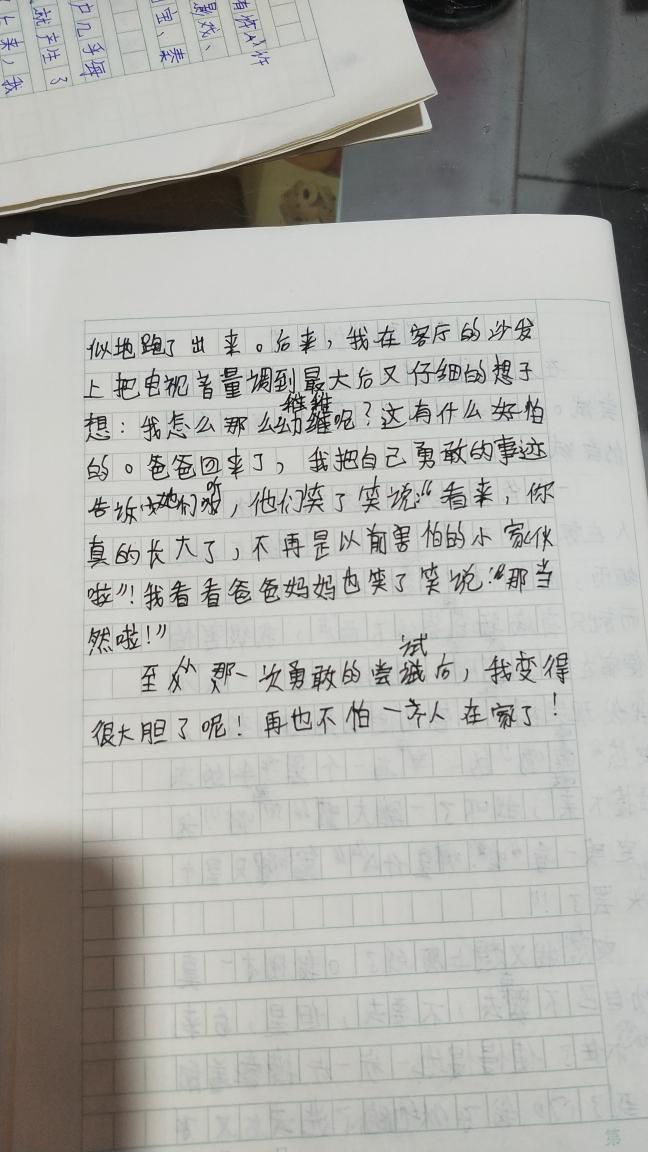 有情人作
影戏、
里、表
尸几乎每
就产生了
上来，我
似地跑了出来。后来，我在客厅的沙发
上把电视音量调到最大后又仔细的想了
想：我怎么那么幼稚呢？这有什么好怕
的。爸爸回来了，我把自己勇敢的事迹
告诉他们听，他们笑了笑说：“看来，你
真的长大了，不再是以前害怕的小家伙
啦”！我看看爸爸妈妈也笑了笑说：“那当
然啦！”
至从那一次勇敢的尝试后，我变得
很大胆了呢！再也不怕一个人在家了！
第